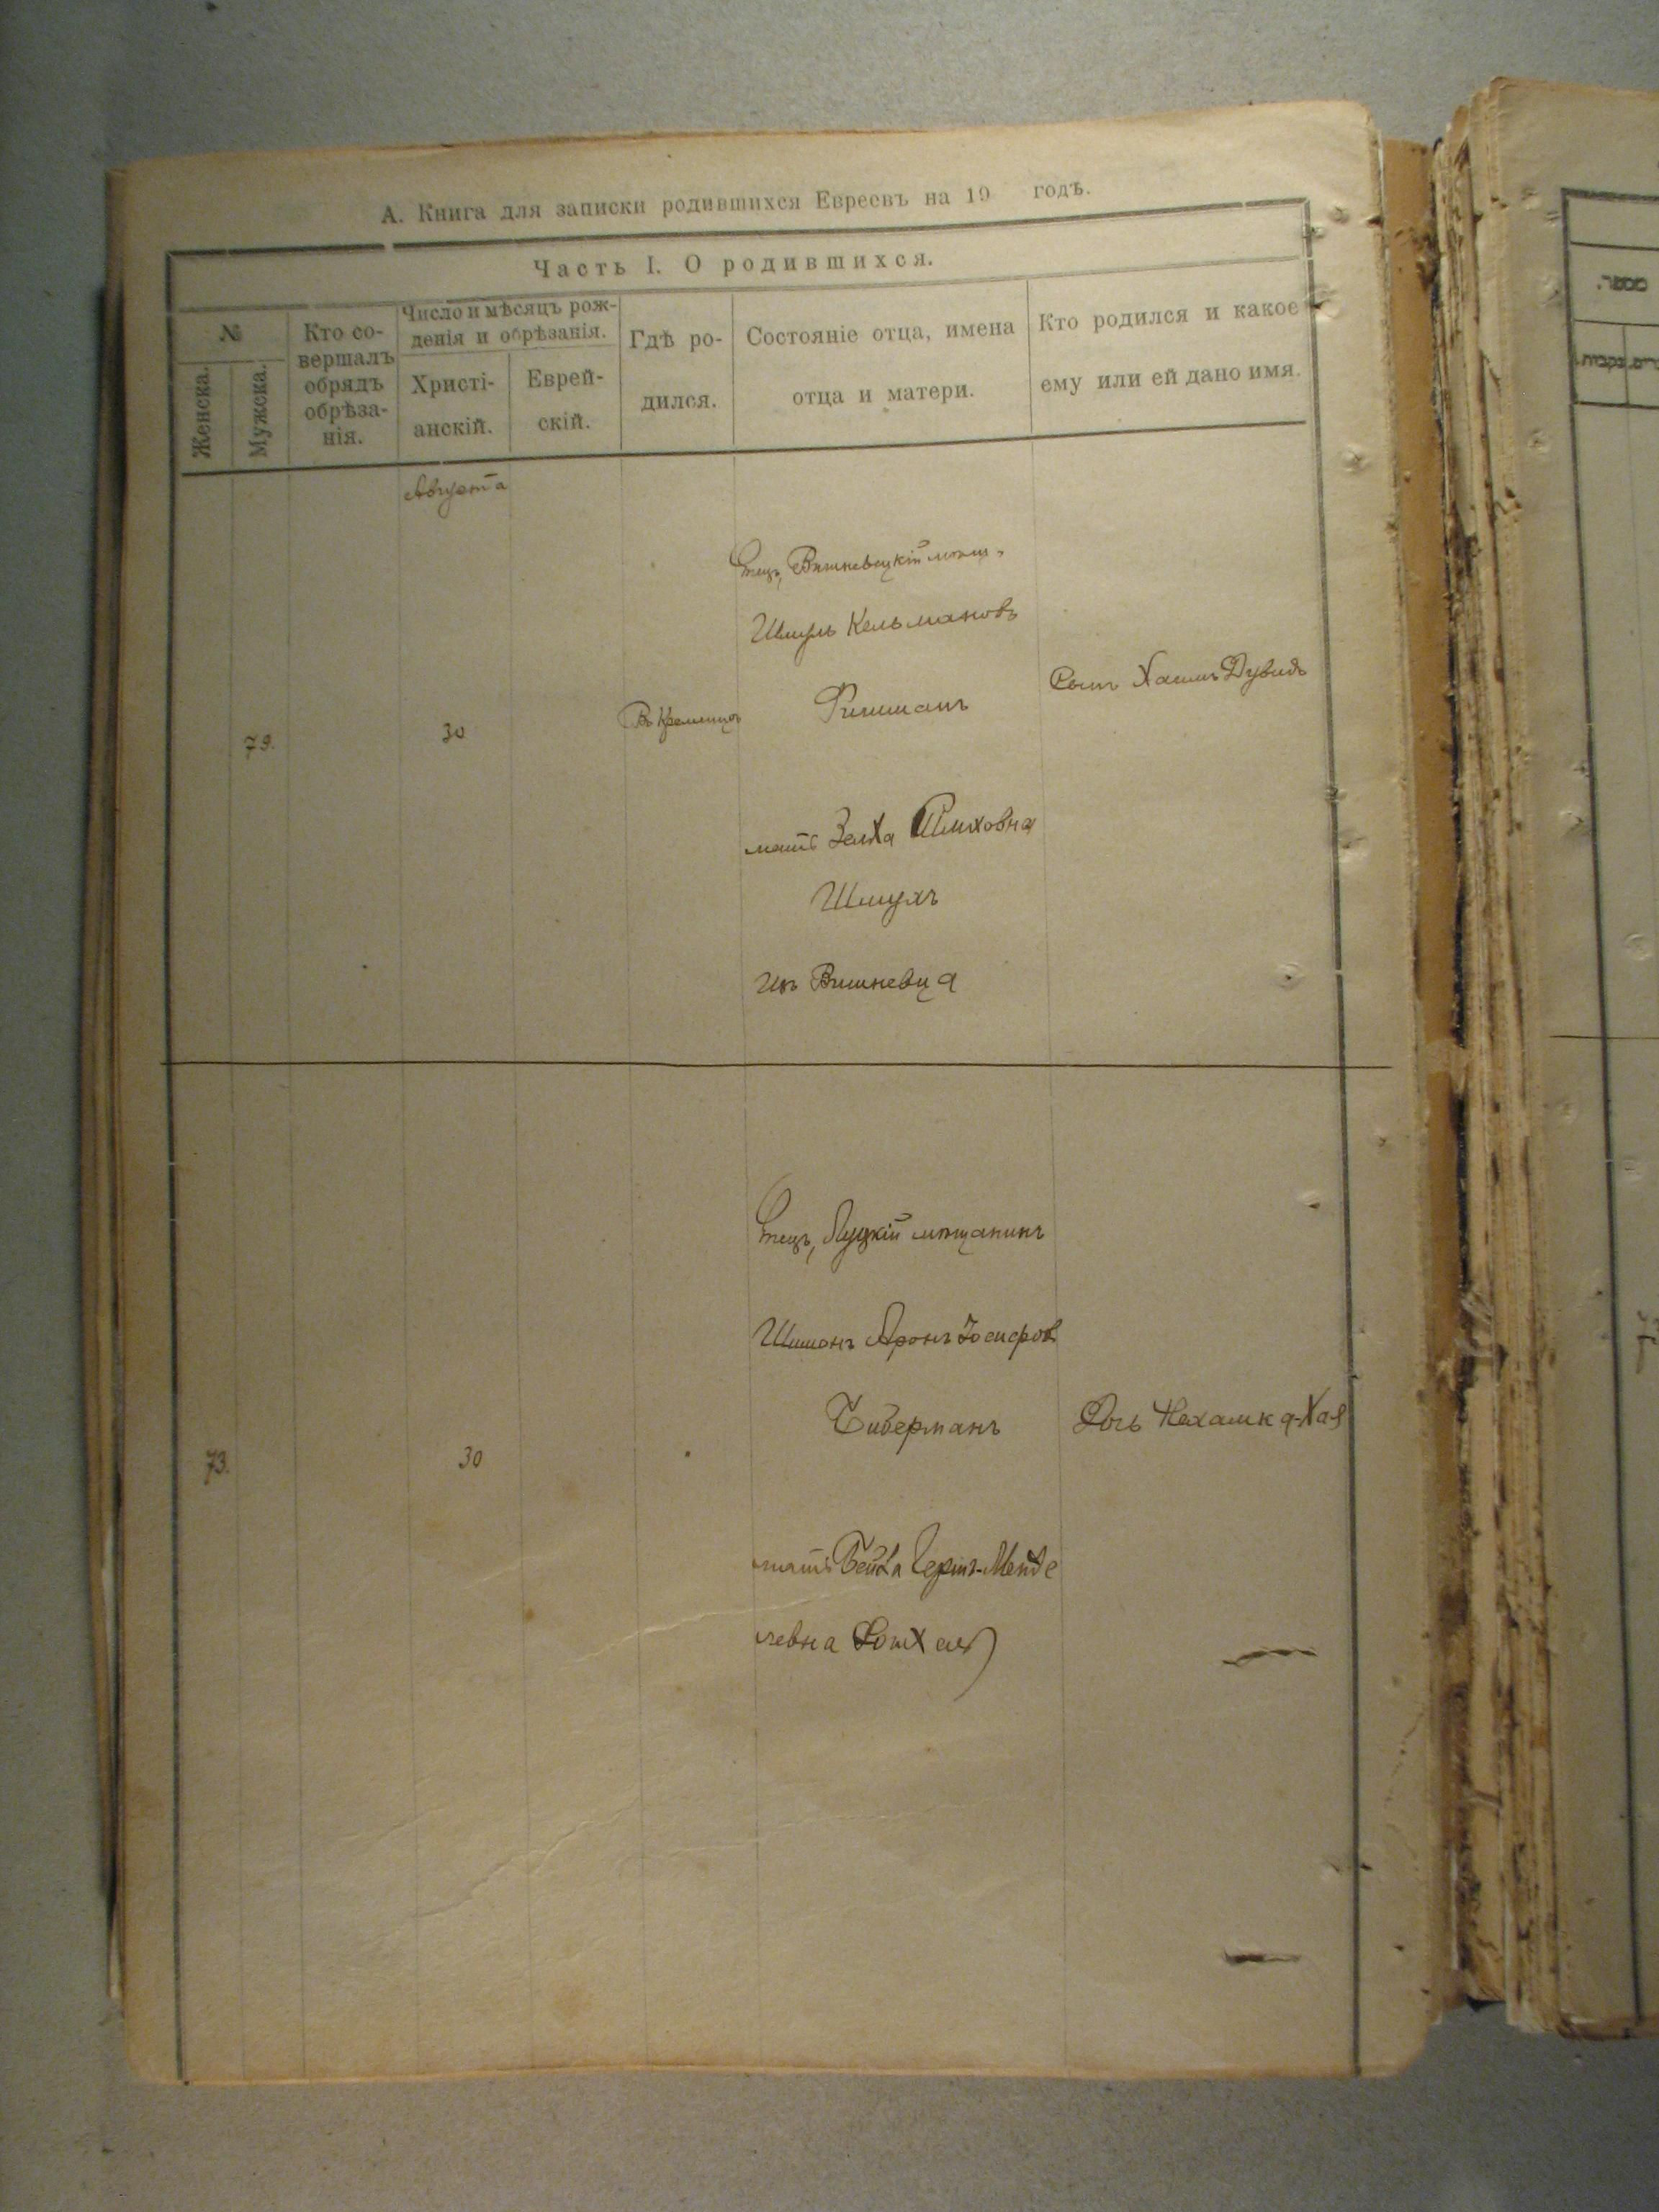 А. Книга для записки родившихся Евреевъ на 19 годъ.
Часть I. О родившихся.
№
Женска.
Мужска.
Кто со-
вершалъ
обрядъ
обрѣза-
нія.
Число и мѣсяцъ рож-
денія и обрѣзанія.
Христі-
анскій.
Еврей-
скій.
Гдѣ ро-
дился.
Состояніе отца, имена
отца и матери.
Кто родился и какое
ему или ей дано имя.
Августа
79.
30
Въ Кременцѣ
Отецъ, Вишневецкій мѣщ.
Шмуль Кельмановъ
Фишманъ
мать Элька
Шмухъ
Изъ Вишневца
Сынъ Хаимъ Дувидъ
73.
30
Отецъ, Луцкій мѣщанинъ
Шимонъ Аронъ Іосифов
Биберманъ
мать Бейла Гершъ-Менде
левна
Дочь Нехамка-Хая